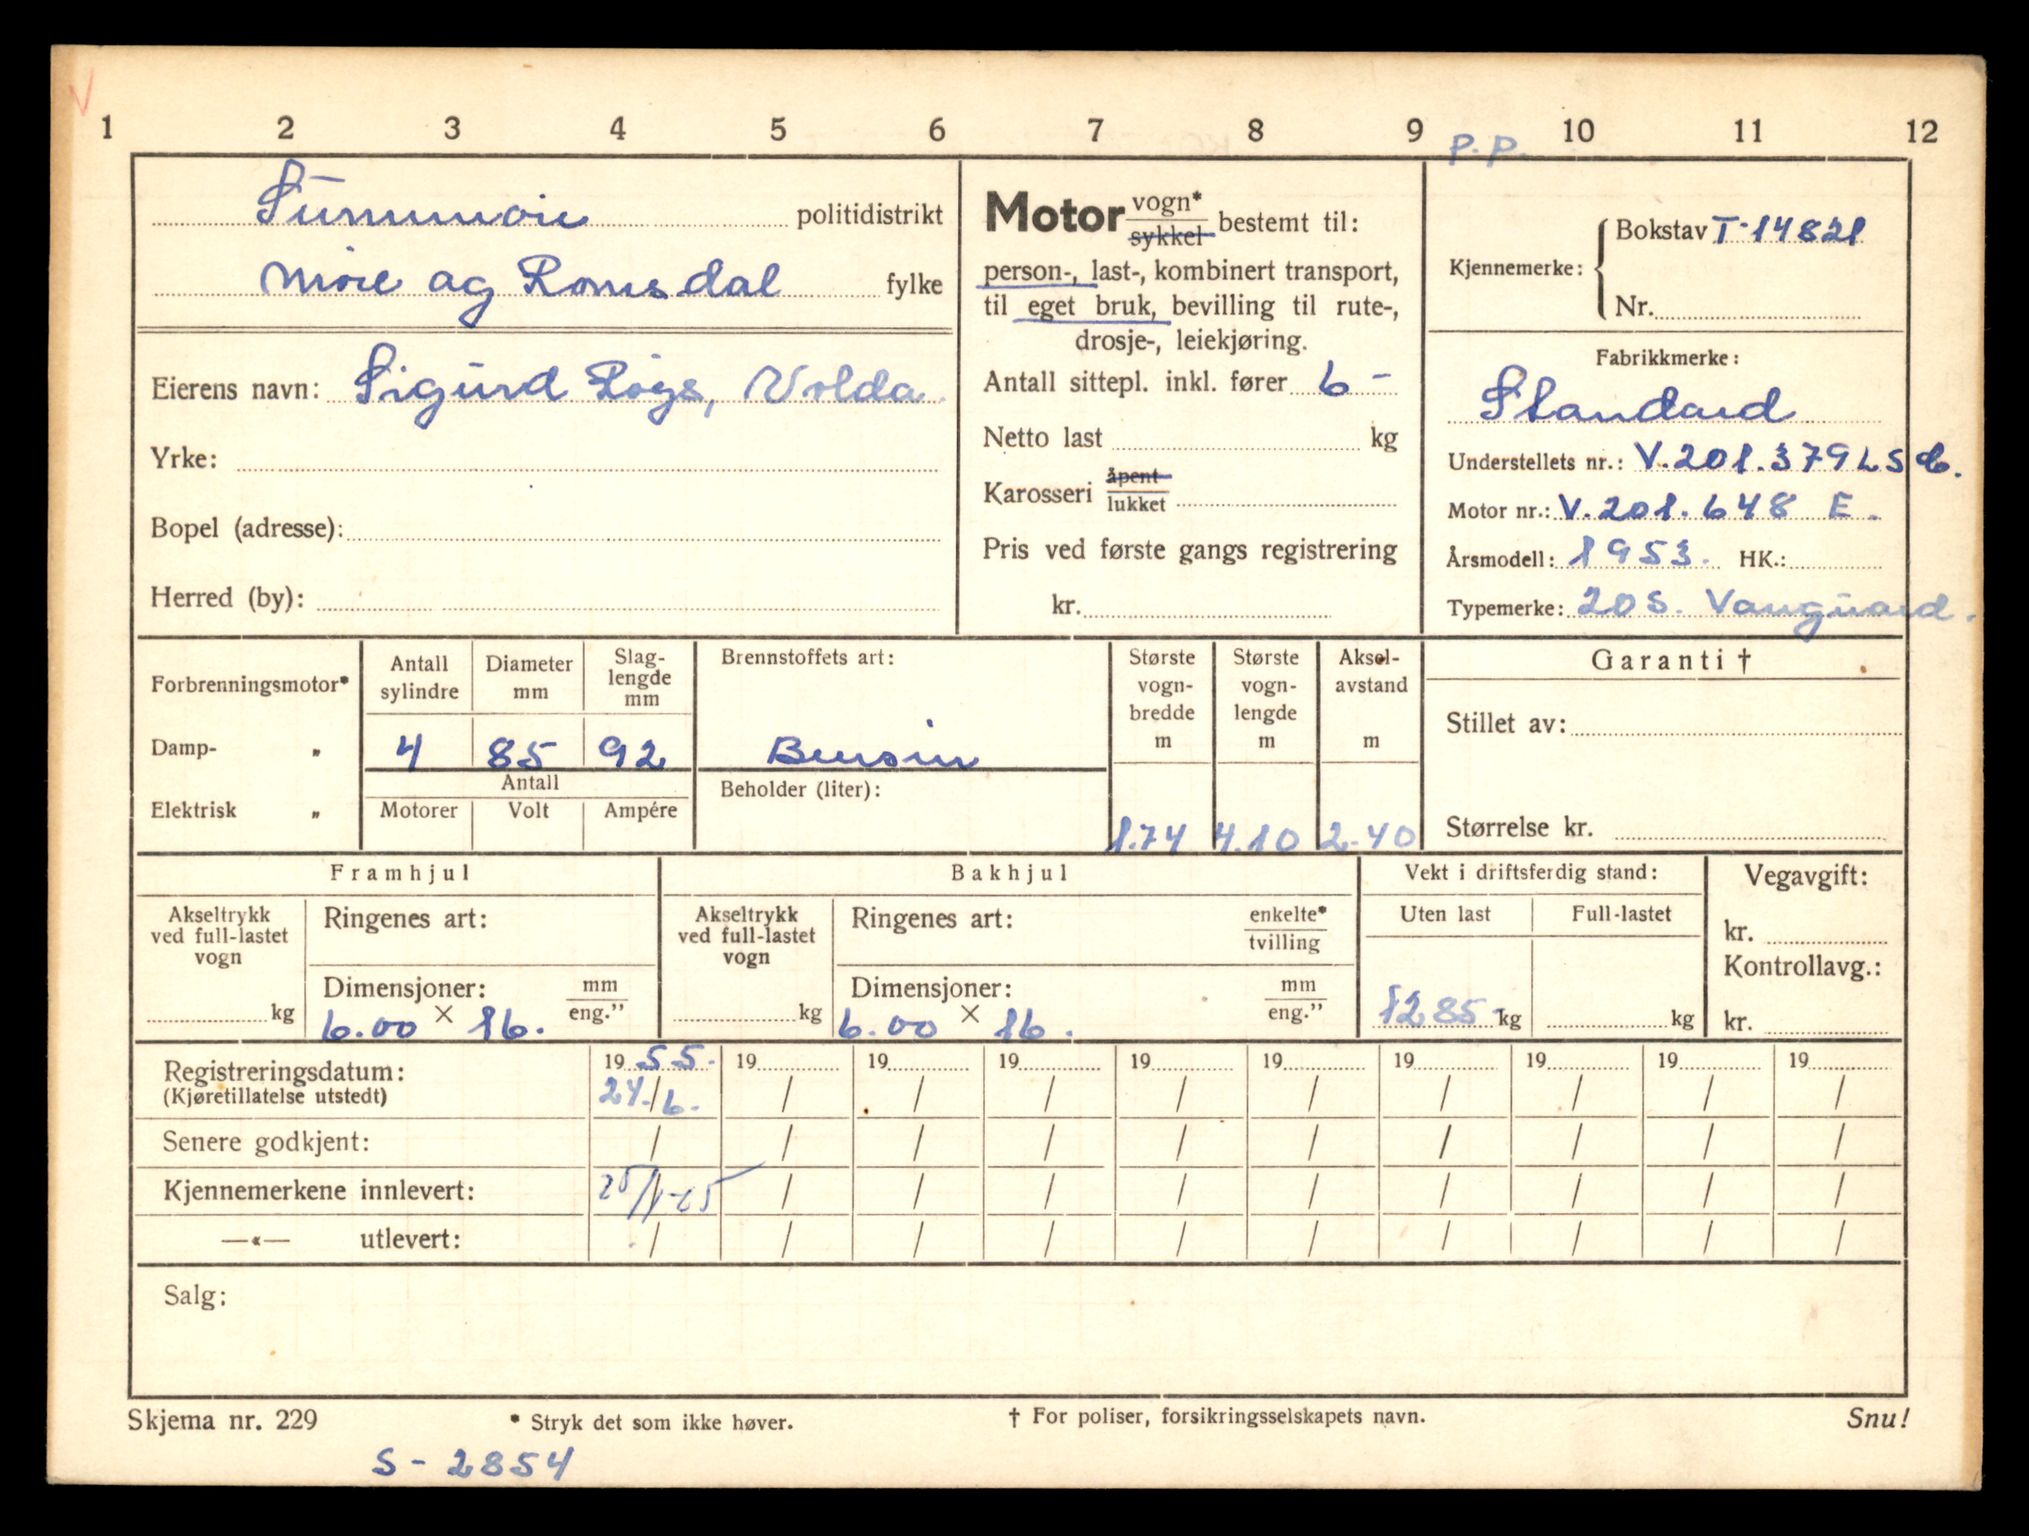 1 2 3 4 5 6 7 8 9 10 11 12
P.P.
Sunnmøre politidistrikt
Møre og Romsdal fylke
Eierens navn: Sigurd Røys, Volda.
Yrke:
Bopel (adresse):
Herred (by):
Motor vogn* sykkel bestemt til:
person-, last-, kombinert transport,
til eget bruk, bevilling til rute-,
drosje-, leiekjøring.
Antall sittepl. inkl. fører 6 -
Netto last kg
Karosseri åpent lukket
Pris ved første gangs registrering
kr.
Kjennemerke: Bokstav T-14821
Nr.
Fabrikkmerke:
Standard
Understellets nr.: V.201.379 LS
Motor nr.: V.201.648 E.
Årsmodell: 1953. HK.:
Typemerke: 20S. Vanguard.
Forbrenningsmotor*
Damp- „
Elektrisk „
Antall sylindre Diameter mm Slag-lengde mm
4 85 92
Antall
Motorer Volt Ampére
Brennstoffets art:
Bensin
Beholder (liter):
Største vogn-bredde m Største vogn-lengde m Aksel-avstand m
1.74 4.10 2.40
Garanti †
Stillet av:
Størrelse kr.
Framhjul
Akseltrykk ved full-lastet vogn
kg
Ringenes art:
Dimensjoner: mm eng.”
6.00 × 16.
Bakhjul
Akseltrykk ved full-lastet vogn
kg
Ringenes art: enkelte* tvilling
Dimensjoner: mm eng.”
6.00 × 16.
Vekt i driftsferdig stand:
Uten last Full-lastet
1285 kg kg
Vegavgift:
kr.
Kontrollavg.:
kr.
19 55. 19 19 19 19 19 19 19 19 19
Registreringsdatum: 24./6. / / / / / / / / /
(Kjøretillatelse utstedt)
Senere godkjent: / / / / / / / / / /
Kjennemerkene innlevert: / / / / / / / / /
—«— utlevert: / / / / / / / / / /
Salg:
Skjema nr. 229 * Stryk det som ikke høver. † For poliser, forsikringsselskapets navn. Snu!
S - 2854